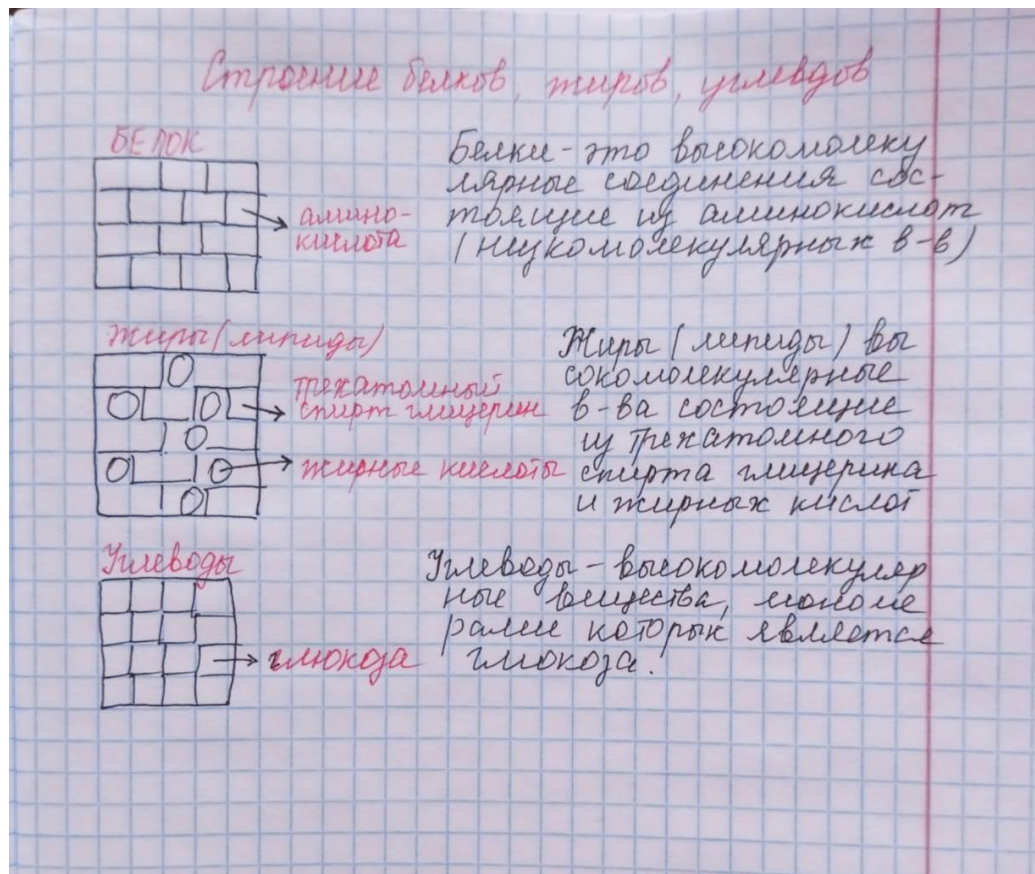 Строение белков, жиров, углевдов
БЕЛОК
амино-
кислота
Белки - это высокомолеку
лярные соединения сос-
тоящие из аминокислот
(низкомолекулярных в-в)
Жиры (липиды)
трехатомный
спирт глицерин
жирные кислоты
Жиры (липиды) вы
сокомолекулярные
в-ва состоящие
из трехатомного
спирта глицерина
и жирных кислот
Углеводы
глюкоза
Углеводы - высокомолекуляр
ные вещества, мономе
рами которых является
глюкоза.